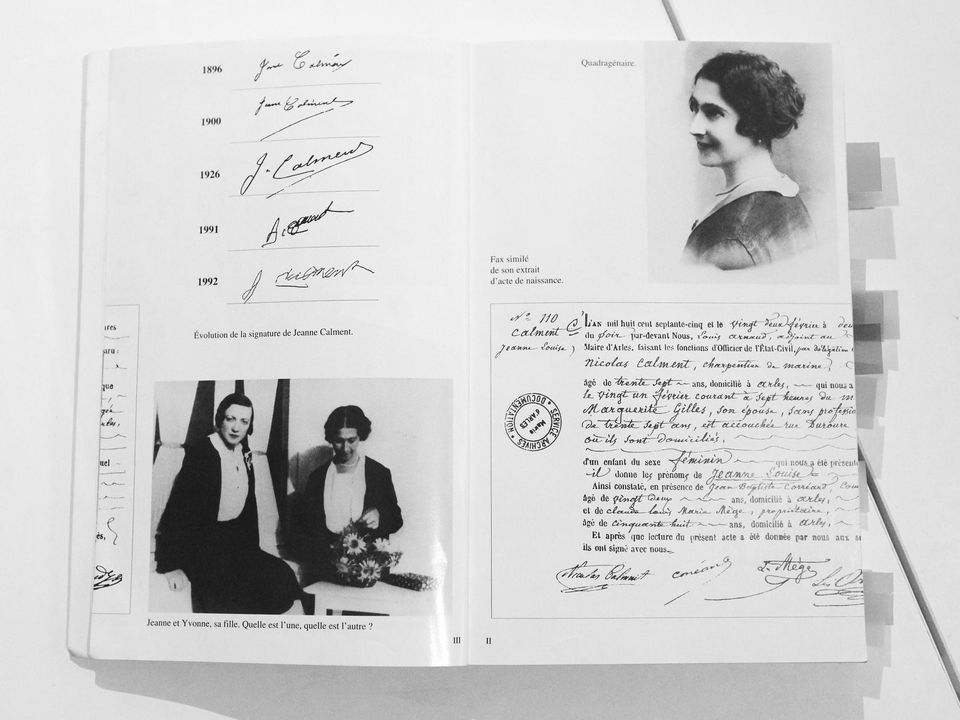 1896 Jne Calment
1900 Jeanne Calment
1926 J. Calment
1991
1992 J Calment
Évolution de la signature de Jeanne Calment.
Jeanne et Yvonne, sa fille. Quelle est l'une, quelle est l'autre ?
III
Quadragénaire.
Fax similé
de son extrait
d'acte de naissance.
N° 110
Calment
Jeanne Louise
L'AN mil huit cent septante-cinq et le vingt deux février à
du soir par-devant Nous, Louis arnaud, adjoint au
Maire d'Arles, faisant les fonctions d'Officier de l'État-Civil, par délégation
Nicolas Calment, charpentier de marine,
âgé de trente sept ans, domicilié à arles, qui nous a
le vingt un février courant à sept heures du m
Marguerite Gilles, son épouse, sans professio
de trente sept ans, est accouchée rue
où ils sont domiciliés.
d'un enfant du sexe féminin qui nous a été présenté
il donne les prénoms de Jeanne Louise
Ainsi constaté, en présence de Jean Baptiste
âgé de vingt deux ans, domicilié à arles,
et de claude Louis Marie Mège, propriétaire,
âgé de cinquante huit ans, domicilié à arles,
Et après que lecture du présent acte a été donnée par nous aux
ils ont signé avec nous.
Nicolas Calment L. Mège
SERVICE ARCHIVES • DOCUMENTATION
Mairie
d'ARLES
II